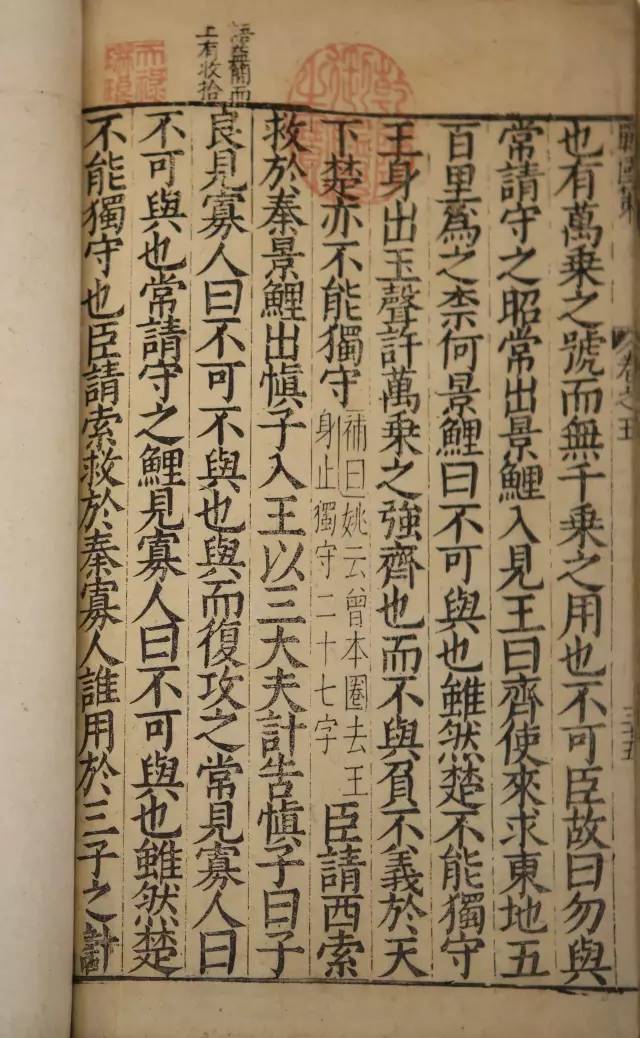 戰國策 卷之五 三十五
也有萬乘之號而無千乘之用也不可臣故曰勿與
常請守之昭常出景鯉入見王曰齊使來求東地五
百里爲之柰何景鯉曰不可與也雖然楚不能獨守
王身出玉聲許萬乘之強齊也而不與負不義於天
下楚亦不能獨守
補曰姚云曾本圈去王
身止獨守二十七字
臣請西索
救於秦景鯉出愼子入王以三大夫計告愼子曰子
良見寡人曰不可不與也與而復攻之常見寡人曰
不可與也常請守之鯉見寡人曰不可與也雖然楚
不能獨守也臣請索救於秦寡人誰用於三子之計
語益簡而
上有收拾
天祿
琳琅